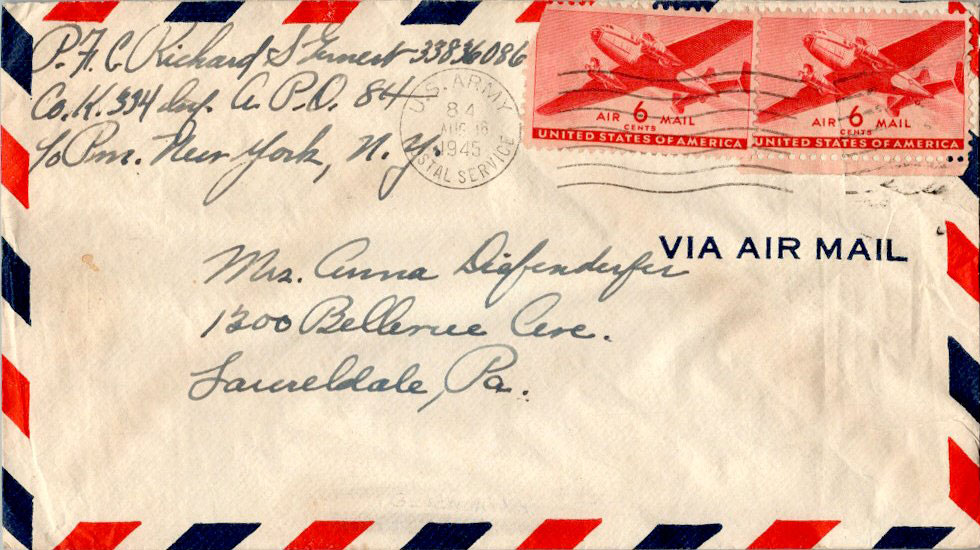 P.F.C. Richard S Ernest - 33836086
Co. K. 334 Inf. A.P.O. 84
c/o P.m. New York, N.Y.
U.S. ARMY
84
AUG 16
1945
POSTAL SERVICE
6
AIR MAIL
CENTS
UNITED STATES OF AMERICA
6
AIR MAIL
CENTS
UNITED STATES OF AMERICA
VIA AIR MAIL
Mrs. Anna Diefenderfer
1300 Bellevue Ave.
Laureldale, Pa.